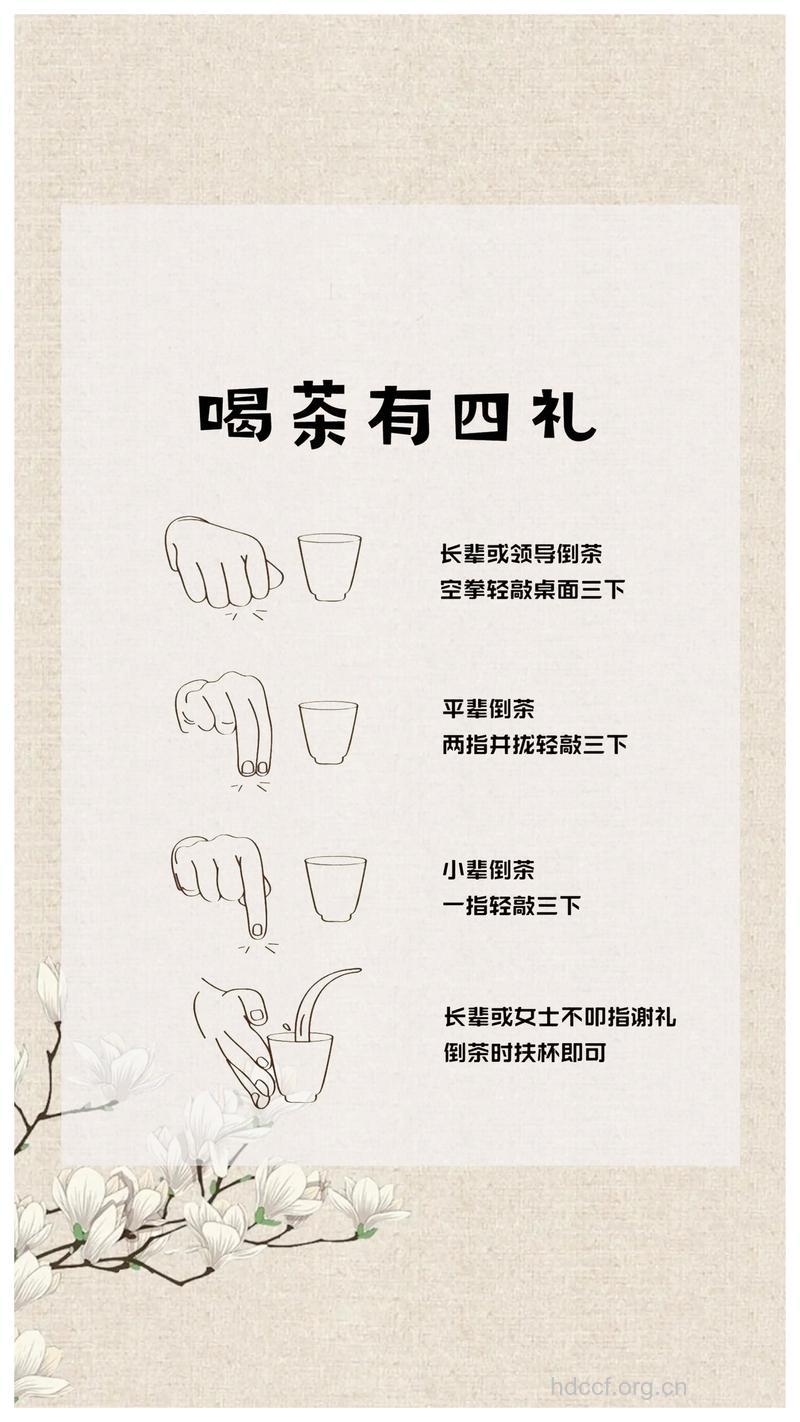 喝茶有四礼
长辈或领导倒茶
空拳轻敲桌面三下
平辈倒茶
两指并拢轻敲三下
小辈倒茶
一指轻敲三下
长辈或女士不叩指谢礼
倒茶时扶杯即可
hdccf.org.cn